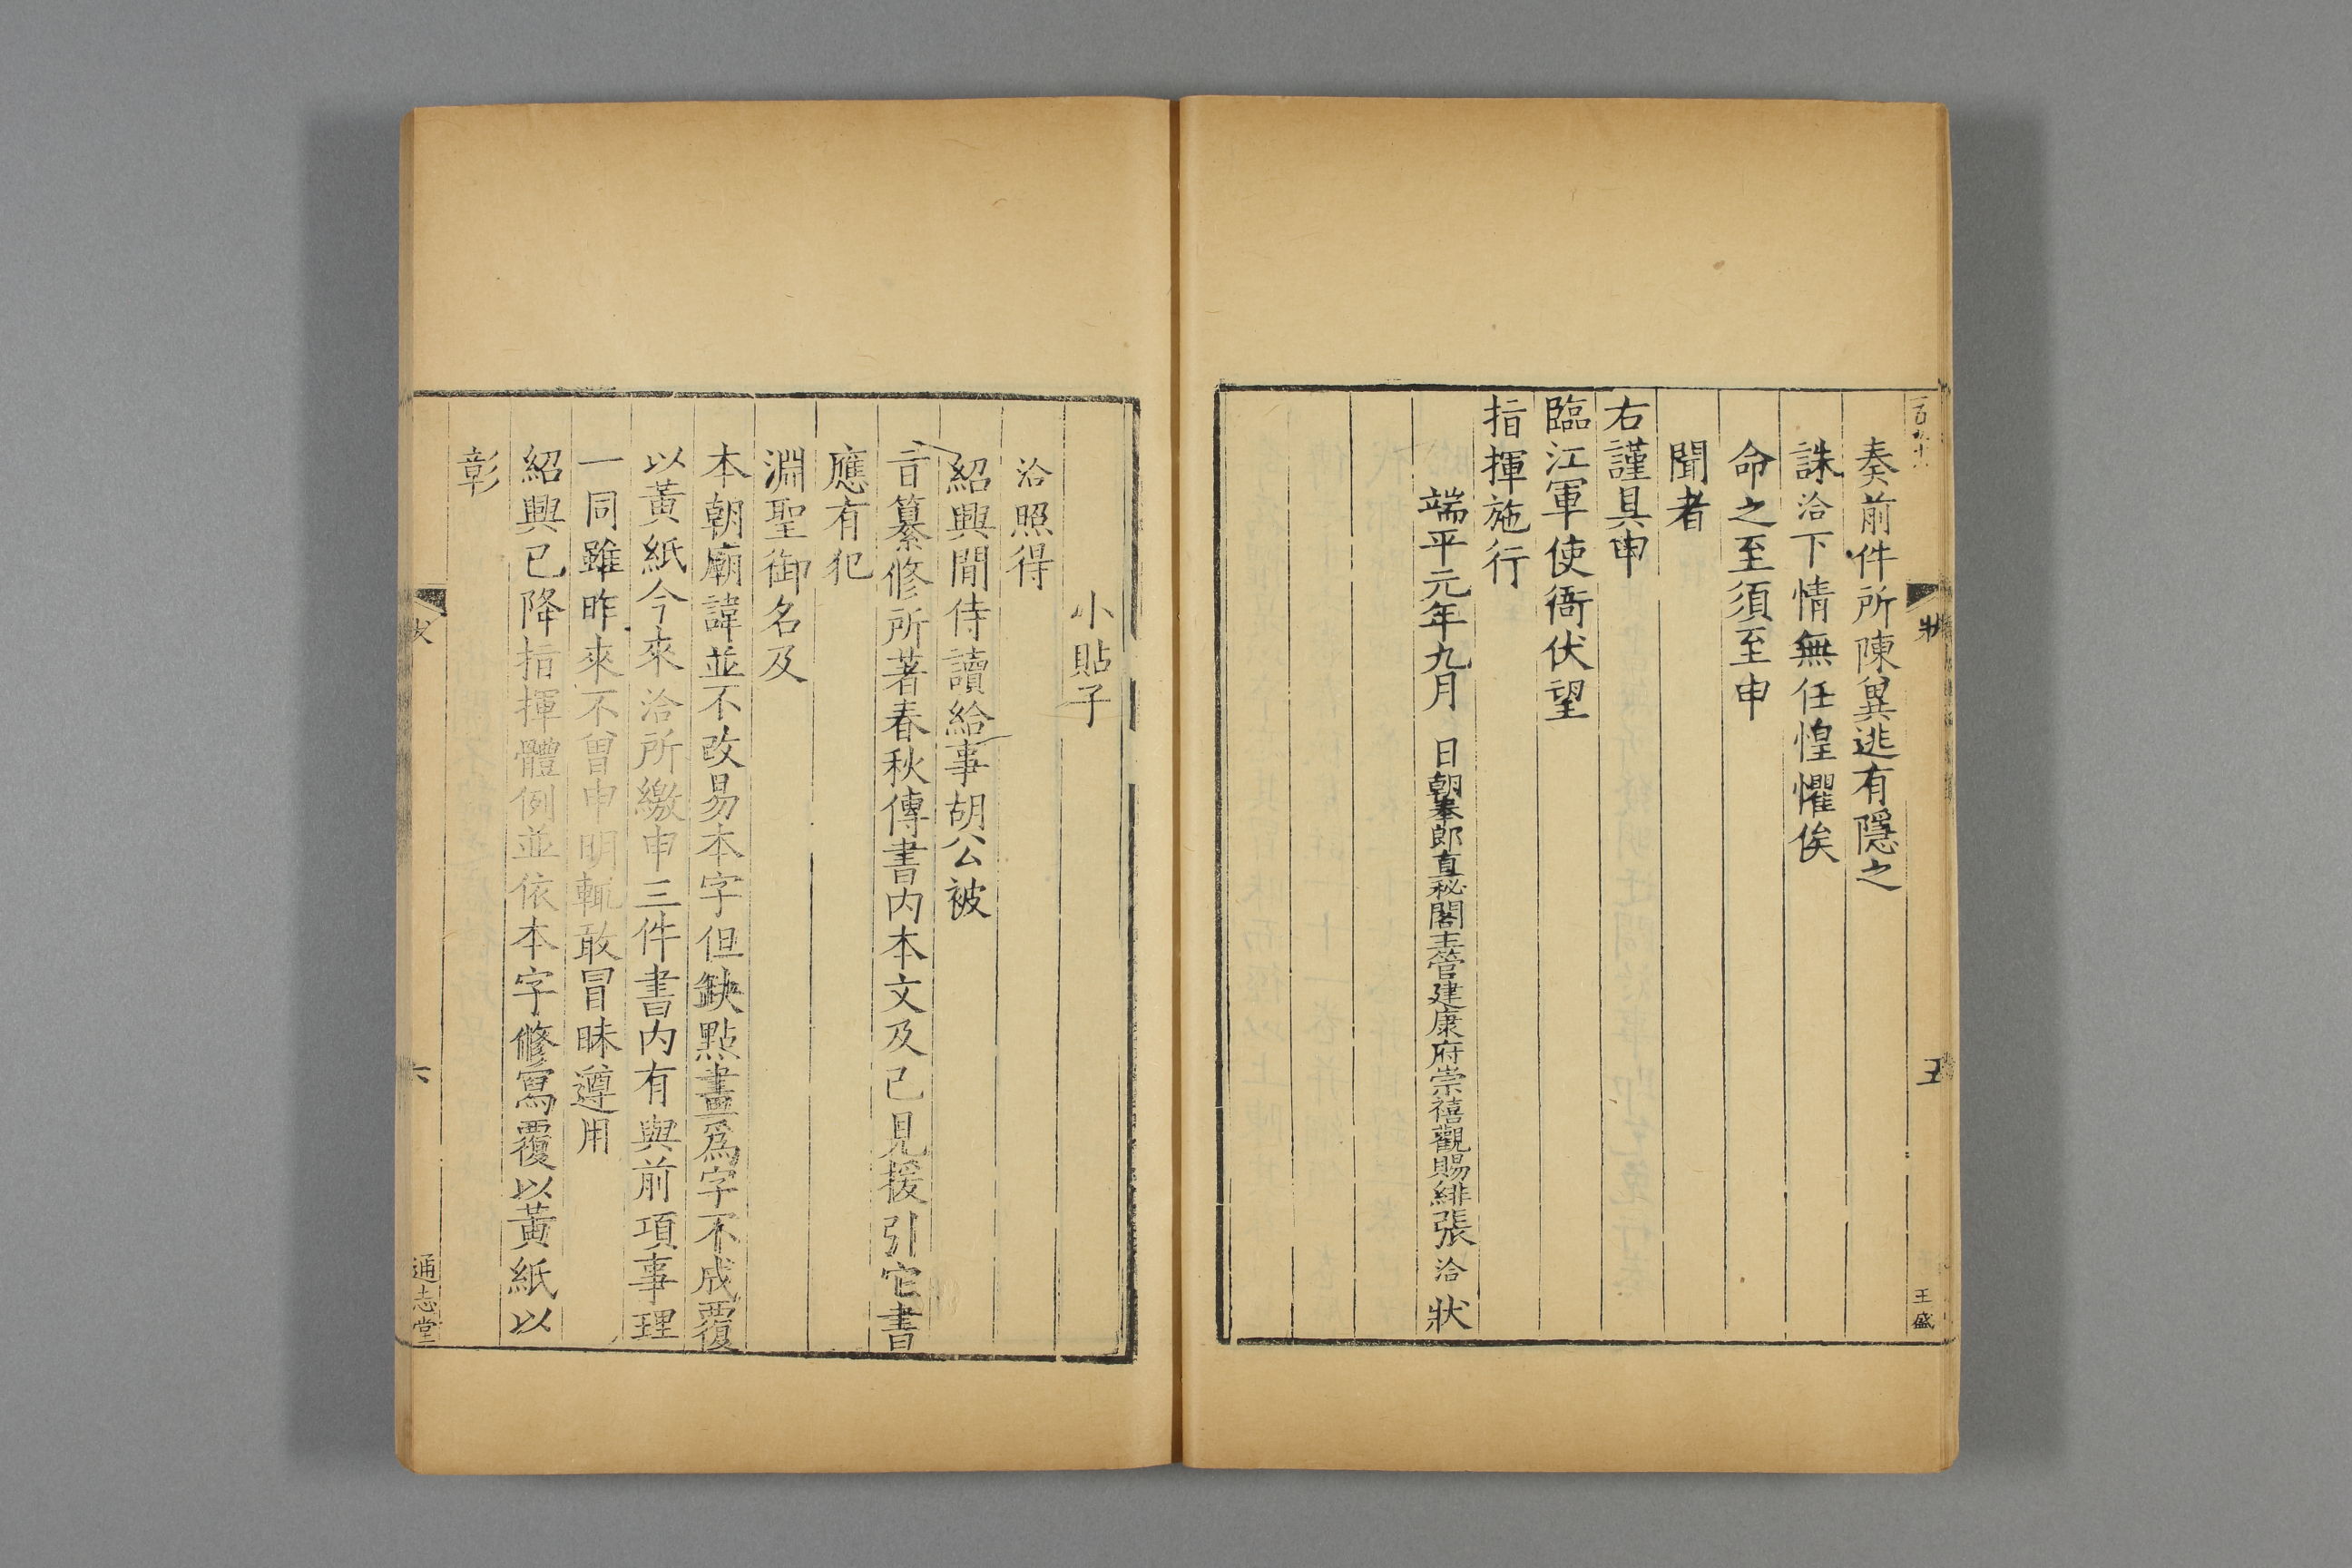 奏前件所陳異逃有隱之
誅洽下情無任惶懼俟
命之至須至申
聞者
右謹具申
臨江軍使衙伏望
指揮施行
端平元年九月 日朝奉郎直秘閣主管建康府崇禧觀賜緋張洽狀
五
王盛
小貼子
洽照得
紹興間侍讀給事胡公被
旨纂修所著春秋傳書内本文及已見援引它書
應有犯
淵聖御名及
本朝廟諱並不改易本字但缺點畫爲字不成覆
以黄紙今來洽所繳申三件書内有與前項事理
一同雖昨來不曾申明輒敢冒昧遵用
紹興已降指揮體例並依本字修寫覆以黄紙以
彰
六
通志堂